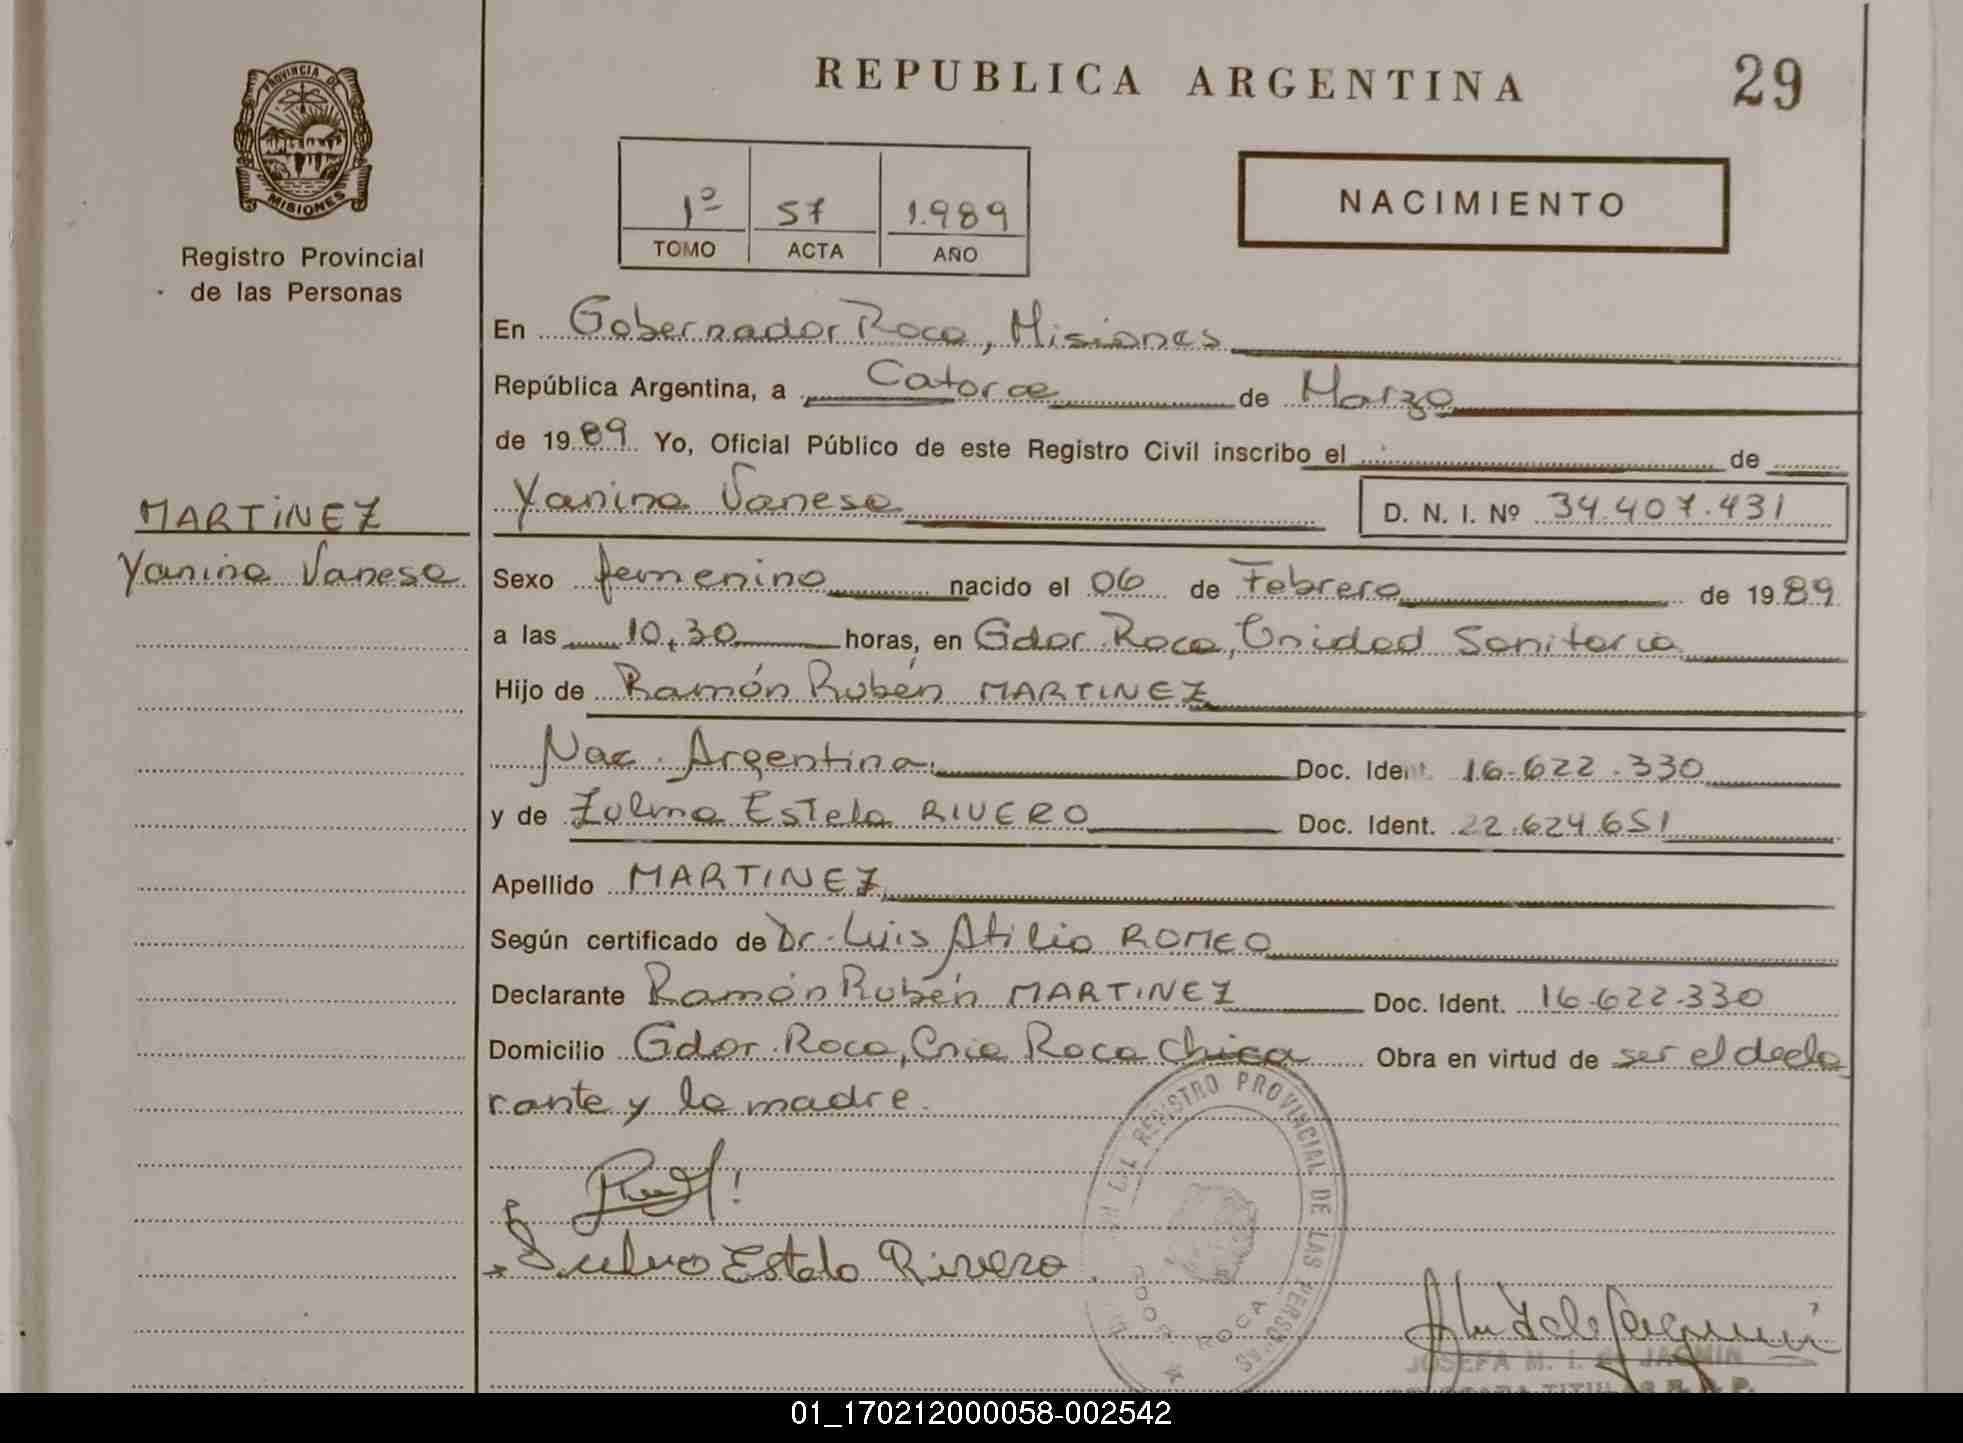 REPUBLICA ARGENTINA
29
PROVINCIA DE
MISIONES
1º 57 1.989
TOMO ACTA AÑO
NACIMIENTO
Registro Provincial
de las Personas
En Gobernador Roca, Misiones
República Argentina, a Catorce de Marzo
de 1989 Yo, Oficial Público de este Registro Civil inscribo el de
MARTINEZ
Yanina Vanesa D. N. I. Nº 34.407.431
Yanina Vanesa
Sexo femenino nacido el 06 de Febrero de 1989
a las 10,30 horas, en Gdor. Roca, Unidad Sanitaria
Hijo de Ramón Rubén MARTINEZ
Nac. Argentina. Doc. Ident. 16.622.330
y de Zulma Estela RIVERO Doc. Ident. 22.624.651
Apellido MARTINEZ
Según certificado de Dr. Luis Atilio ROMEO
Declarante Ramón Rubén MARTINEZ Doc. Ident. 16.622.330
Domicilio Gdor. Roca, Cnia Roca Chica Obra en virtud de ser el decla
rante y la madre.
Estela Rivero
REGISTRO PROVINCIAL DE LAS PERSONAS
GDOR ROCA
JOSEFA M. I. de JACMIN
01_170212000058-002542